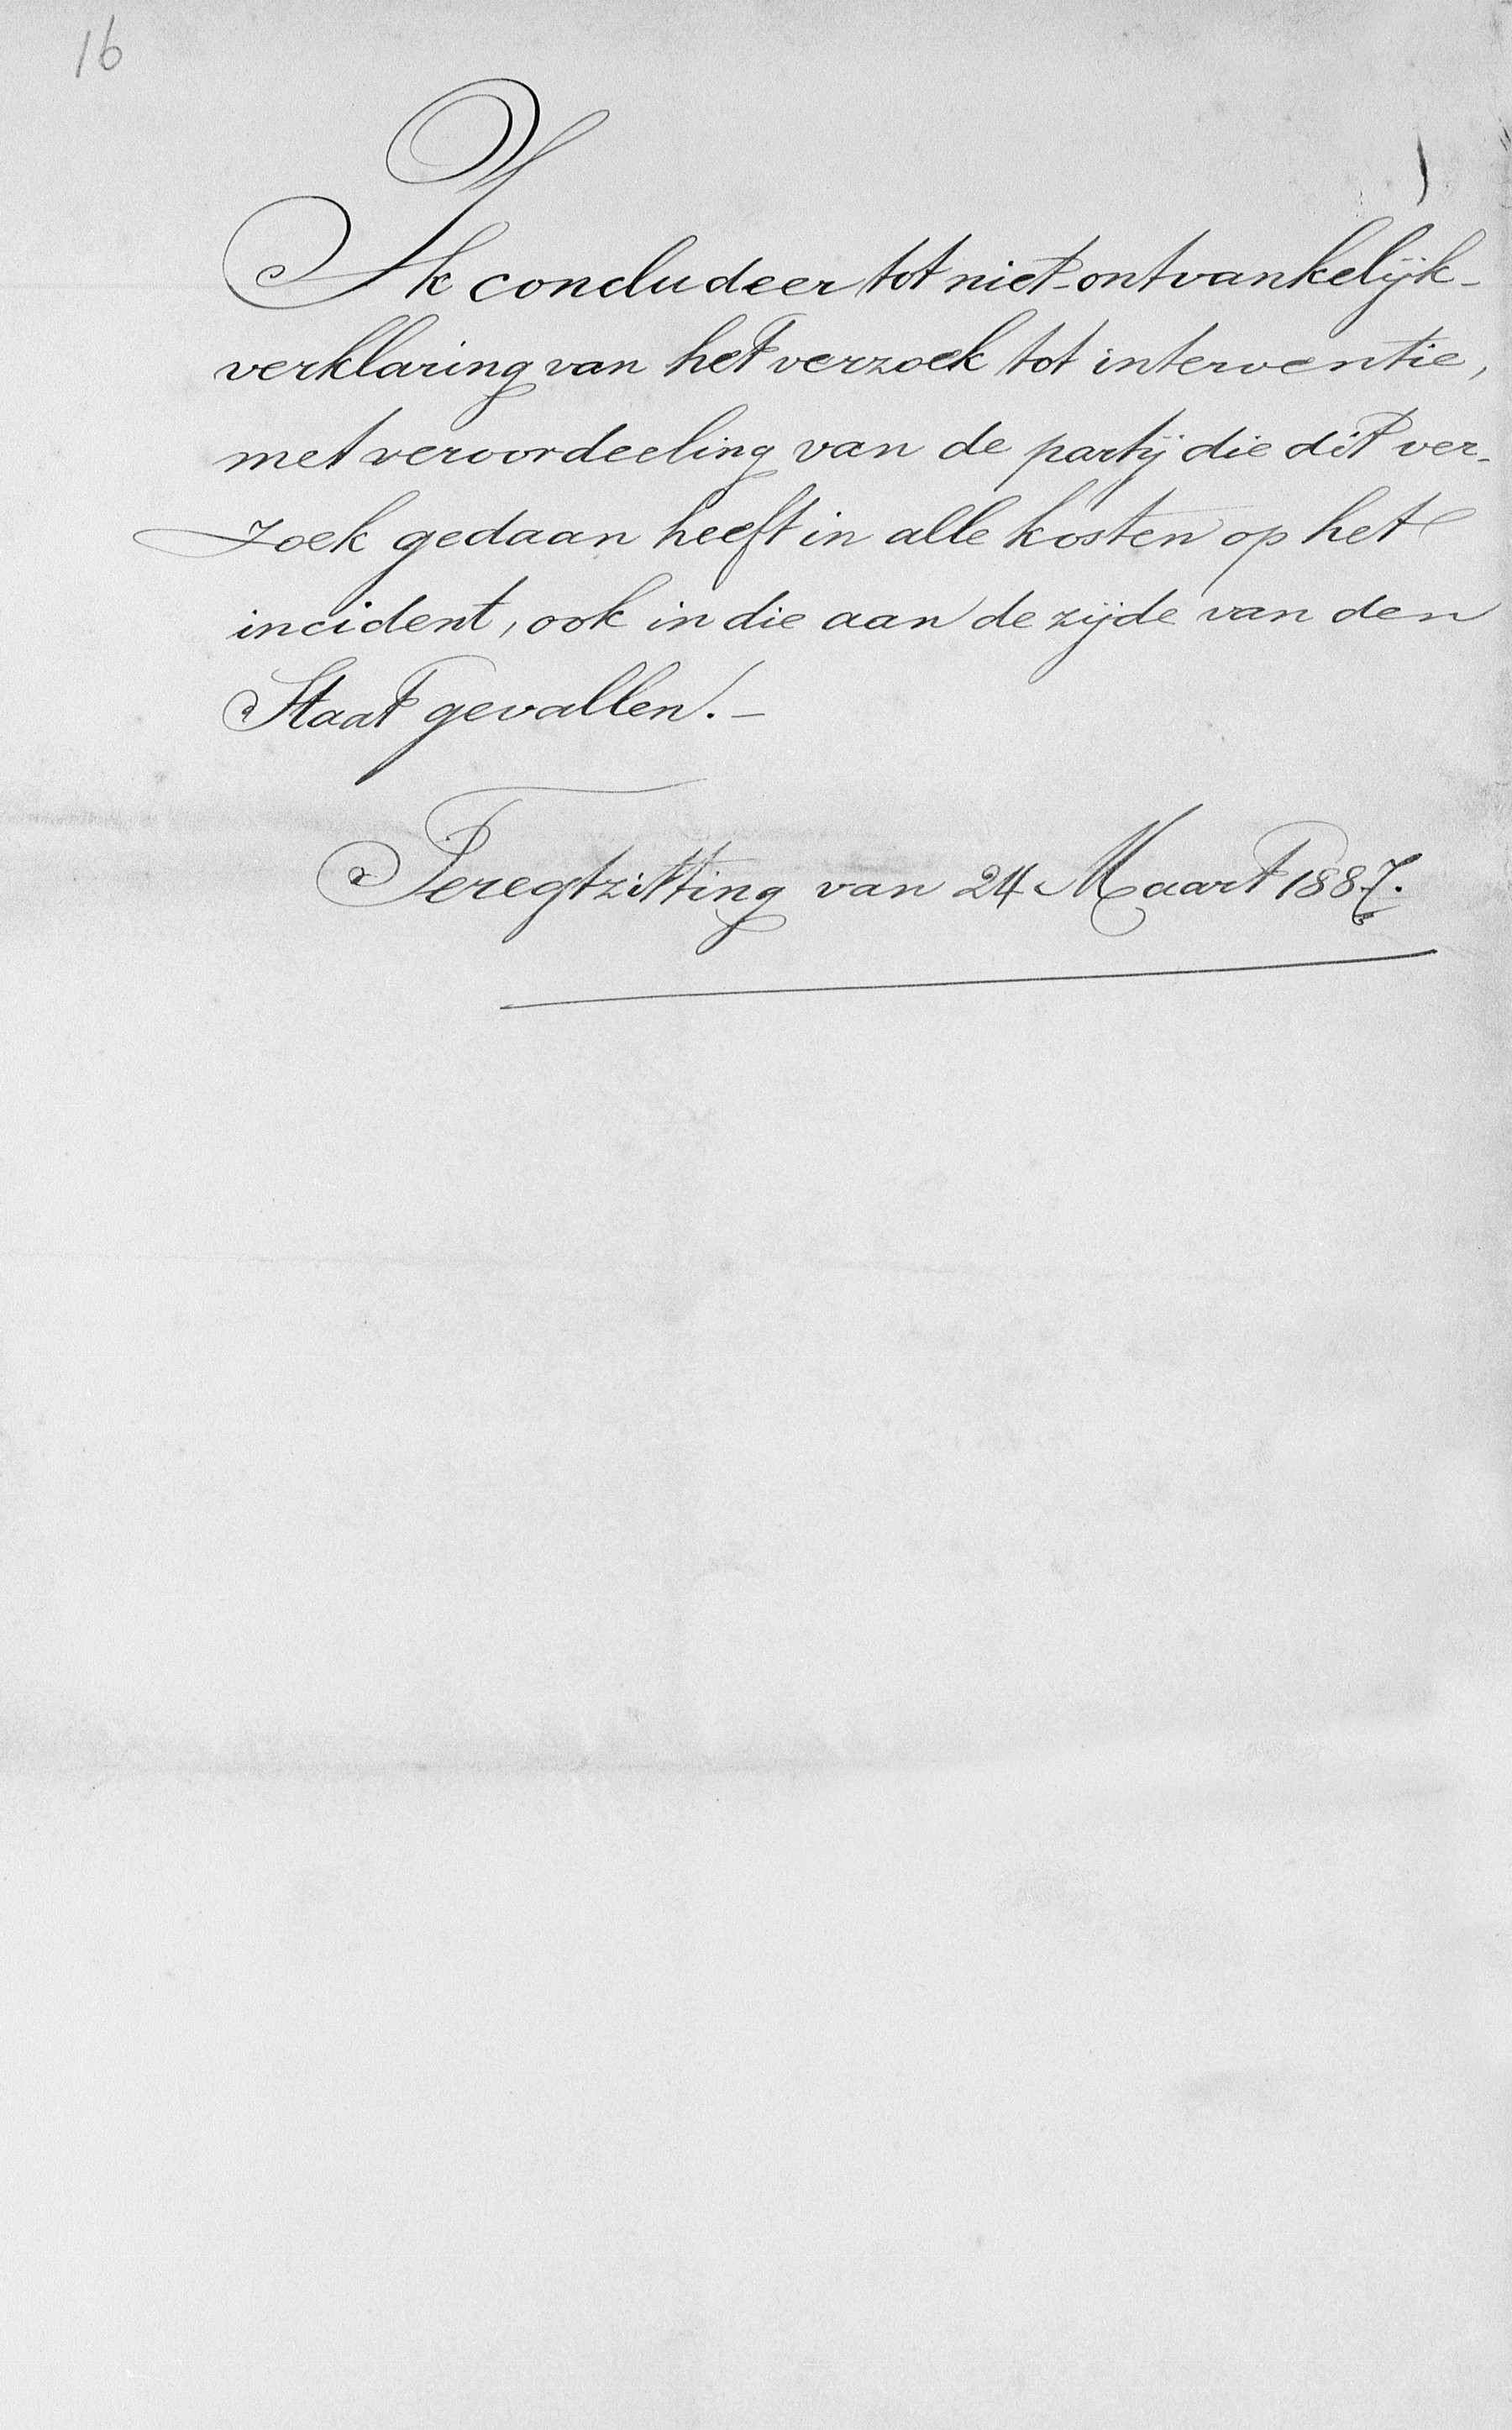 16
Ik concludeer tot niet-ontvankelijk-
verklaring van het verzoek tot interventie,
met veroordeeling van de partij die dit ver-
zoek gedaan heeft in alle kosten op het
incident, ook in die aan de zijde van den
Staat gevallen. -
Teregtzitting van 24 Maart 1887.